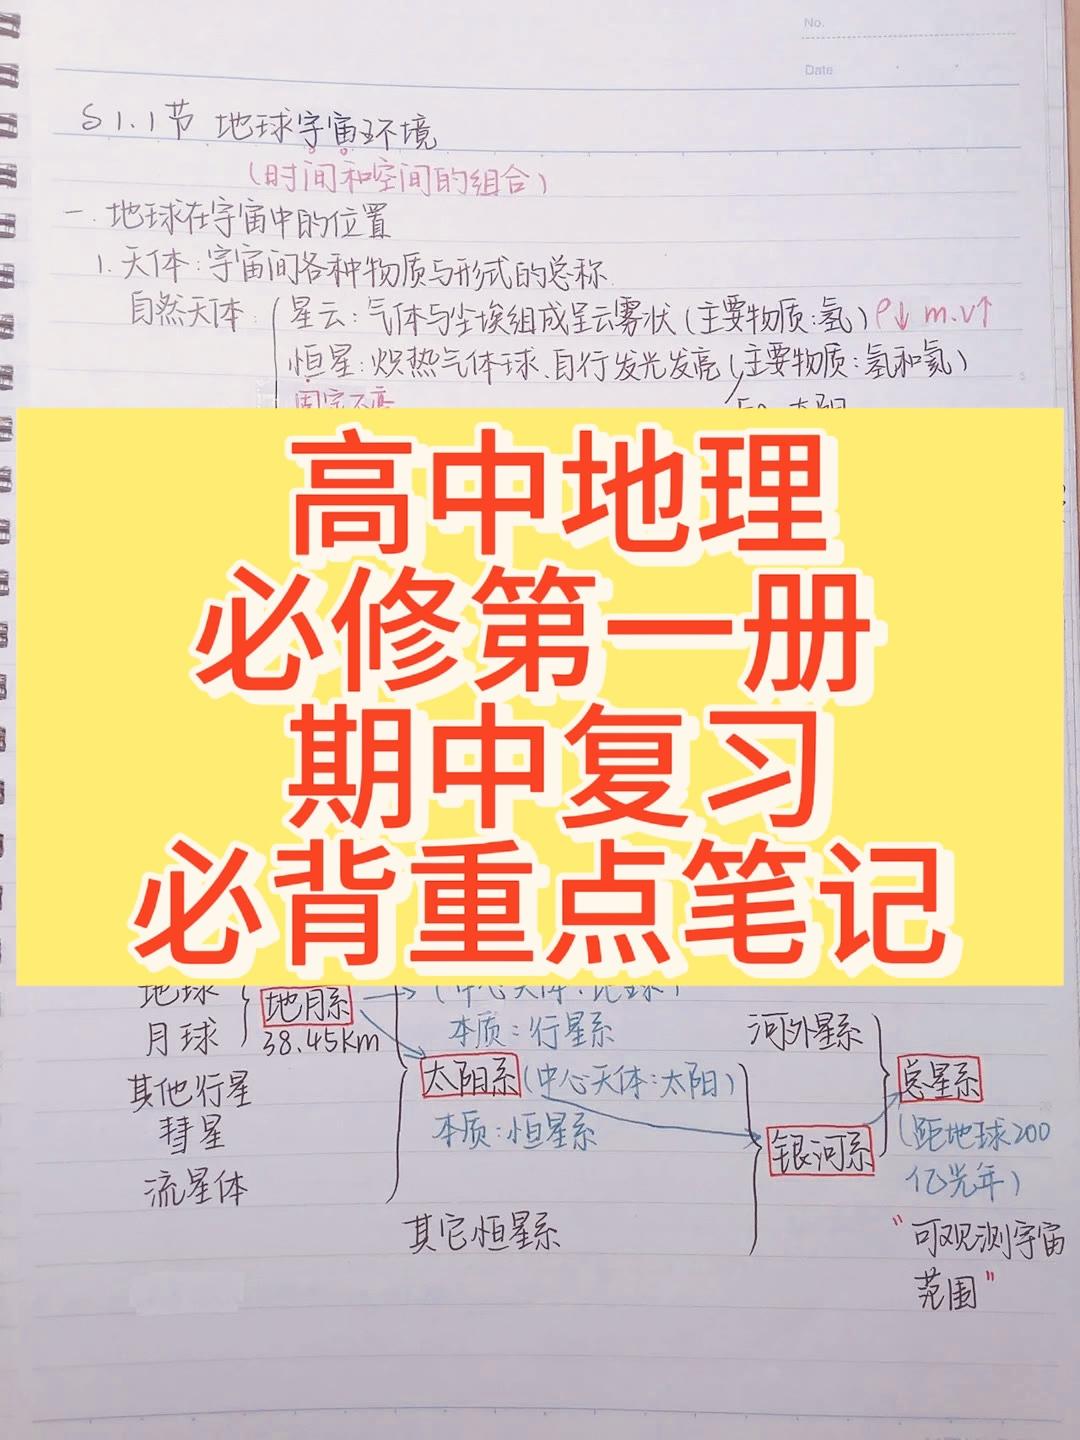 No.
Date
§1.1节 地球宇宙环境
(时间和空间的组合)
一.地球在宇宙中的位置
1.天体:宇宙间各种物质与形式的总称
自然天体:
星云:气体与尘埃组成呈云雾状(主要物质:氢)ρ↓ m.v↑
恒星:炽热气体球.自行发光发亮(主要物质:氢和氦)
固定不变
eg.太阳
高中地理
必修第一册
期中复习
必背重点笔记
地球
月球
地月系
(中心天体:地球)
38.45km
本质:行星系
其他行星
彗星
流星体
太阳系(中心天体:太阳)
本质:恒星系
其它恒星系
河外星系
银河系
总星系
(距地球200
亿光年)
"可观测宇宙
范围"